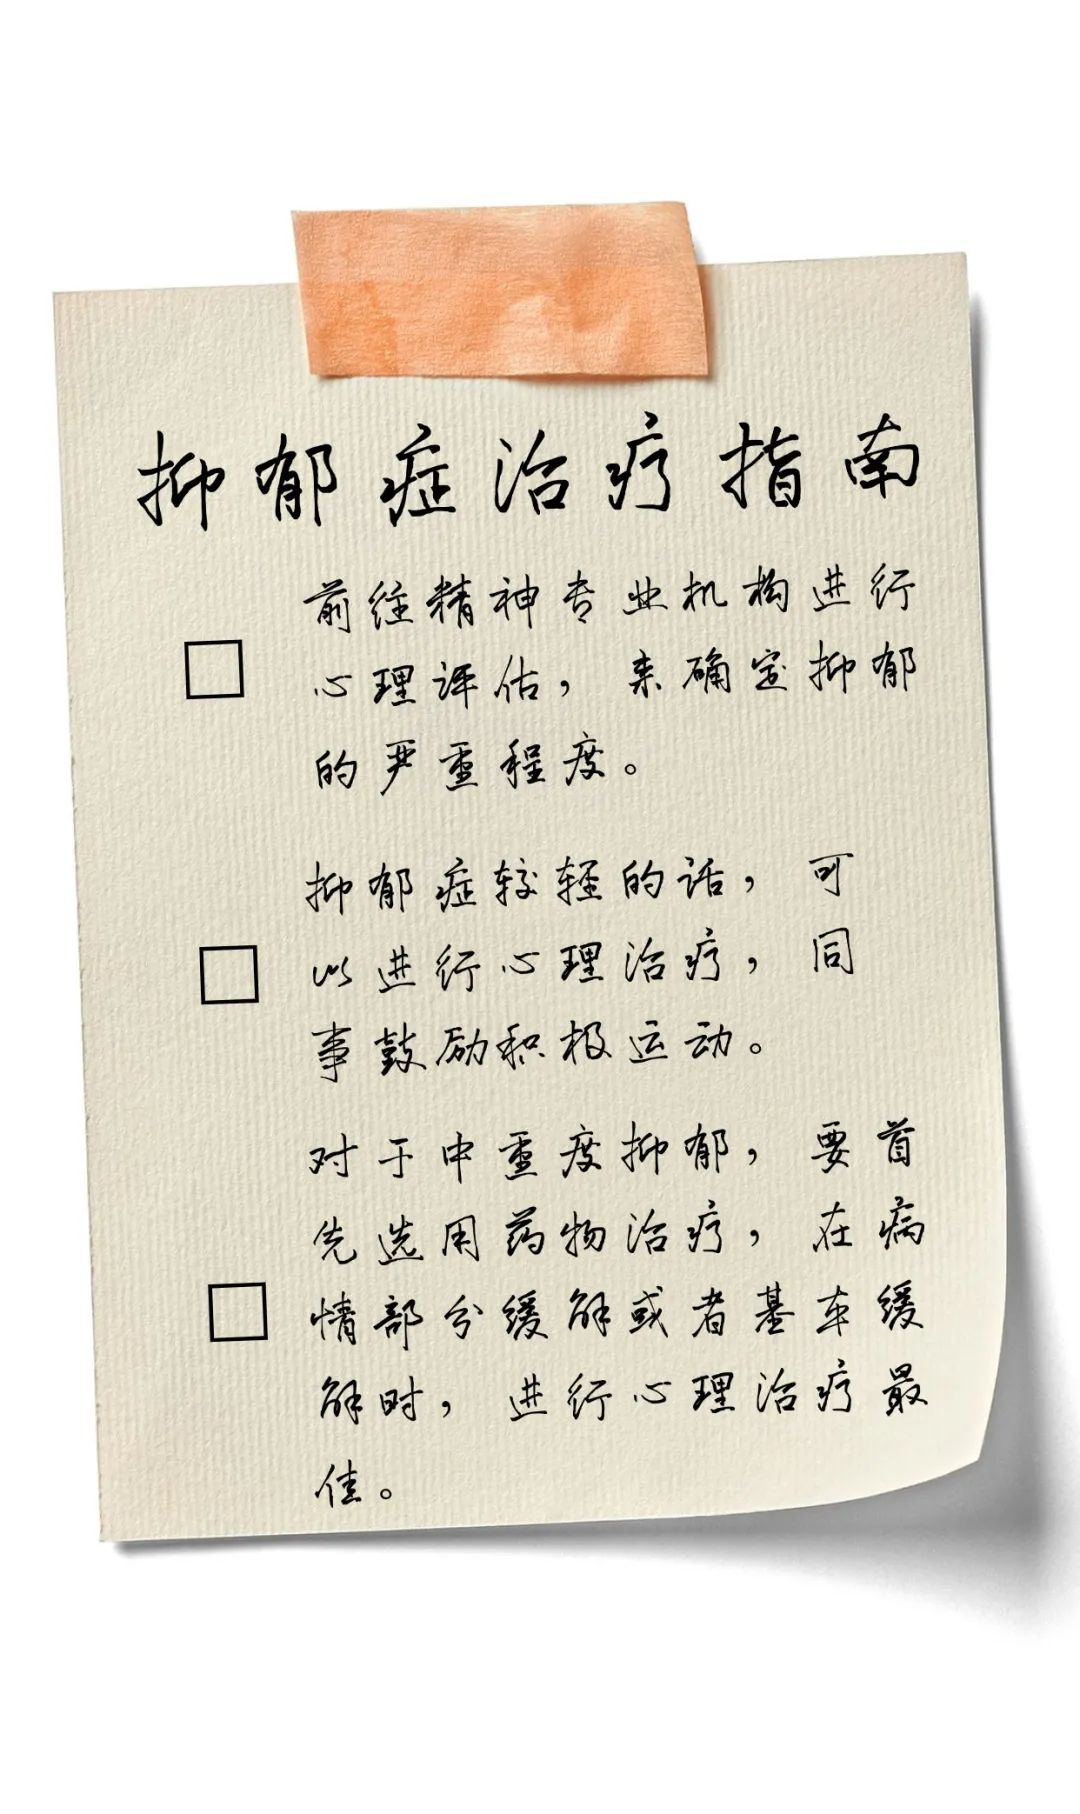 抑郁症治疗指南
前往精神专业机构进行
心理评估，来确定抑郁
的严重程度。
抑郁症较轻的话，可
以进行心理治疗，同
事鼓励积极运动。
对于中重度抑郁，要首
先选用药物治疗，在病
情部分缓解或者基本缓
解时，进行心理治疗最
佳。